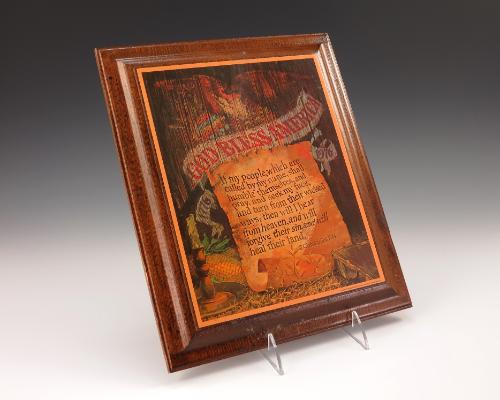 GOD BLESS AMERICA
1976
If my people, which are
called by my name, shall
humble themselves, and
pray, and seek my face,
and turn from their wicked
ways; then will I hear
from heaven, and will
forgive their sin, and will
heal their land.